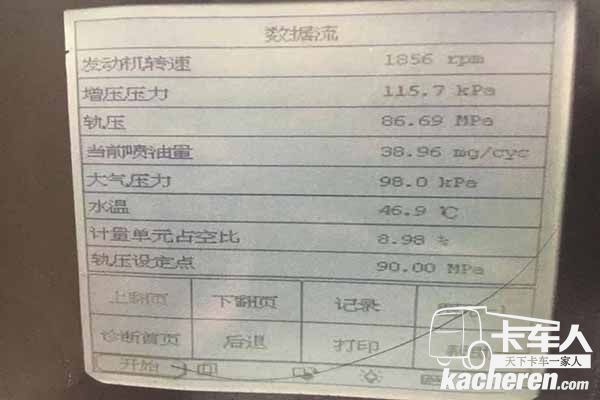 数据流
发动机转速 1856 rpm
增压压力 115.7 kPa
轨压 86.69 MPa
当前喷油量 38.96 mg/cyc
大气压力 98.0 kPa
水温 46.9 ℃
计量单元占空比 8.98 %
轨压设定点 90.00 MPa
上翻页 下翻页 记录
诊断首页 后退 打印
开始
卡车人
天下卡车一家人
kacheren.com